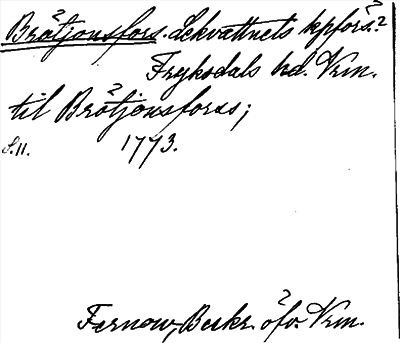 Bråtjonsfors. Lekvattnets kpförs.?
Fryksdals hd. Vrm.
til Bråtjonsforss;
S. 11. 1773.
Fernow, Beskr. öfv. Vrm.